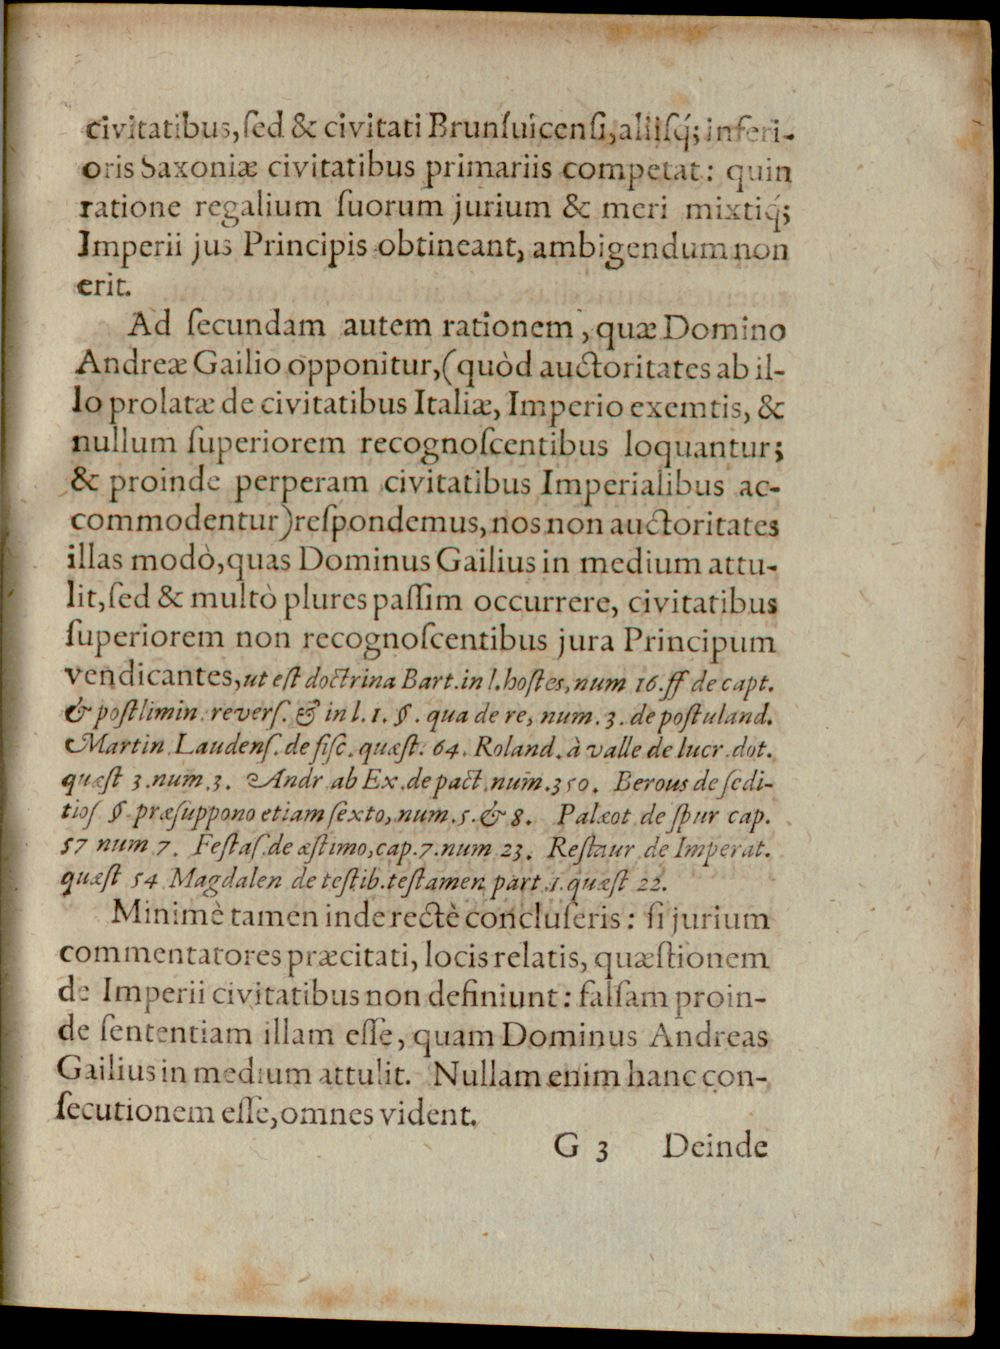 civitatibus, ſed & civitati Brunſuicenſi, aliiſq́; inferi-
oris Saxoniæ civitatibus primariis competat: quin
ratione regalium ſuorum jurium & meri mixtiq́;
Imperii jus Principis obtineant, ambigendum non
erit.
Ad ſecundam autem rationem, quæ Domino
Andreæ Gailio opponitur, (quòd auctoritates ab il-
lo prolatæ de civitatibus Italiæ, Imperio exemtis, &
nullum ſuperiorem recognoſcentibus loquantur;
& proinde perperam civitatibus Imperialibus ac-
commodentur) reſpondemus, nos non auctoritates
illas modò, quas Dominus Gailius in medium attu-
lit, ſed & multò plures paſſim occurrere, civitatibus
ſuperiorem non recognoſcentibus jura Principum
vendicantes, ut eſt doctrina Bart. in l. hoſtes, num 16. ff de capt.
& poſtlimin. reverſ. & in l. 1. §. qua de re, num. 3. de poſtuland.
Martin Laudenſ. de fiſc. quæſt. 64. Roland. à valle de lucr. dot.
quæſt 3. num. 3. Andr ab Ex. de pact. num. 350. Berous de ſedi-
tioſ §. præſuppono etiam ſexto, num. 5. & 8. Palæot de ſpur cap.
57 num 7. Feſtaſ. de æſtimo, cap. 7. num 23. Reſtaur de Imperat.
quæſt 54 Magdalen de teſtib. teſtamen part. 1. quæſt 22.
Minimè tamen inde rectè concluſeris: ſi jurium
commentatores præcitati, locis relatis, quæſtionem
de Imperii civitatibus non definiunt: falſam proin-
de ſententiam illam eſſe, quam Dominus Andreas
Gailius in medium attulit. Nullam enim hanc con-
ſecutionem eſſe, omnes vident.
G 3 Deinde